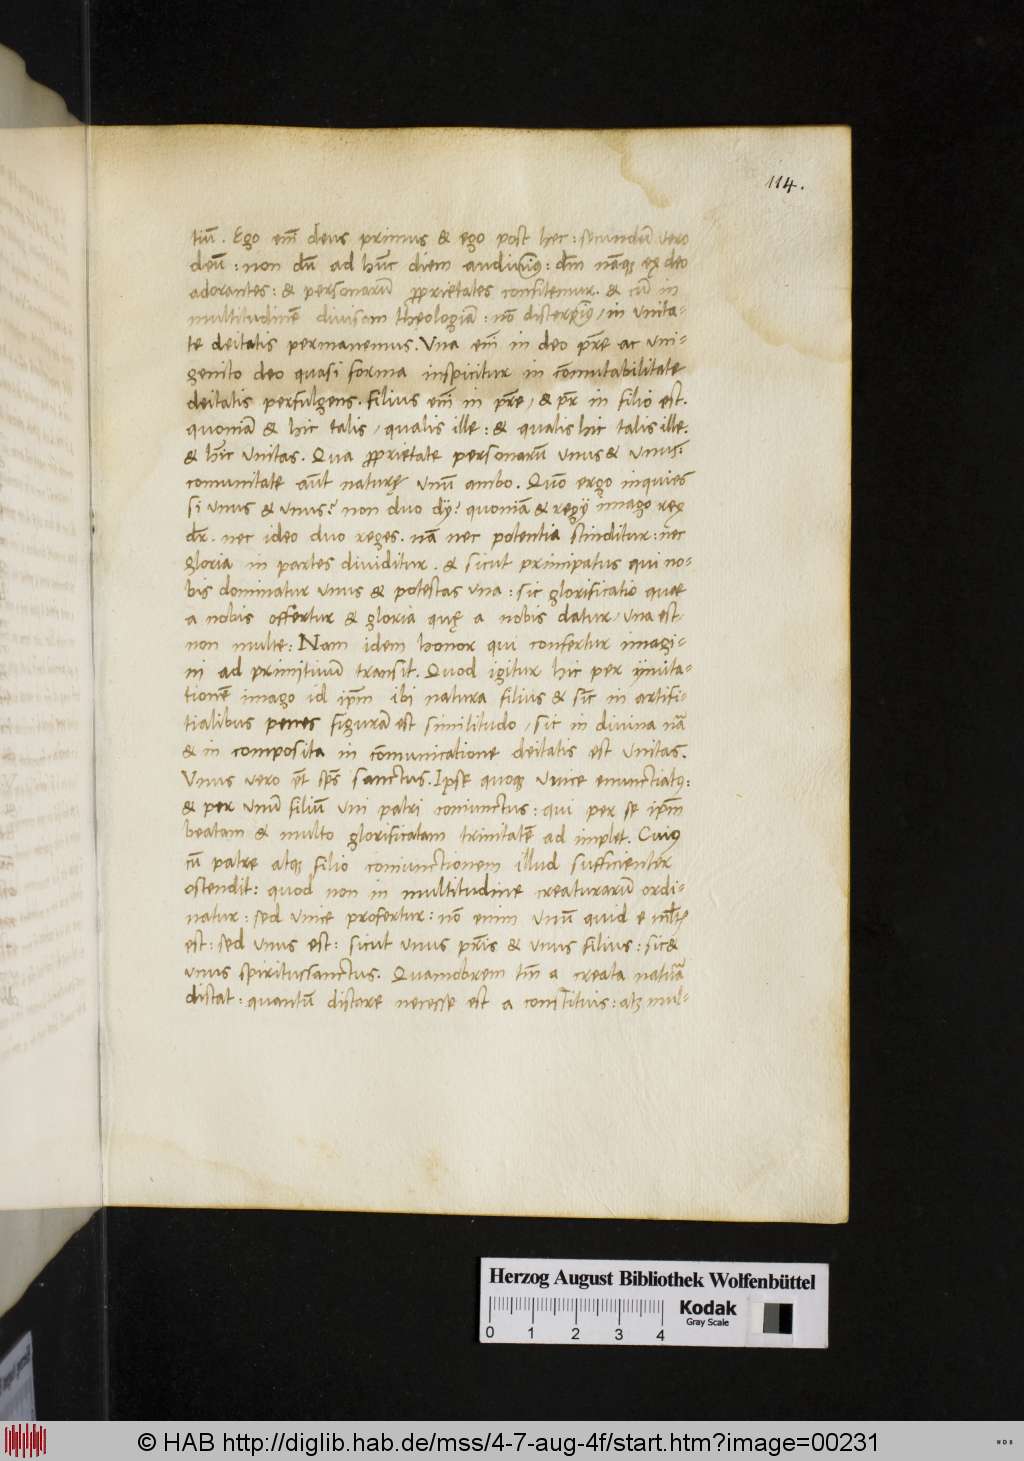 114.
tiū. Ego em̄ deus primus & ego post hec: secundū vero
deū: non dū ad hūc diem audiuimꝰ: dm̄ nāqꝫ ex deo
adorantes: & personarū ꝓprietates confitemur. & cū in
multitudinē diuisam theologiā: nō distergimꝰ, in vnita-
te deitatis permanemus. Vna em̄ in deo pr̄e ac vni-
genito deo quasi forma inspicitur in cōmutabilitate
deitatis perfulgens. filius em̄ in pr̄e, & pr̄ in filio est.
quoniā & hic talis, qualis ille: & qualis hic talis ille.
& hīc vnitas. Qua ꝓprietate personarū vnus & vnus:
comunitate aūt naturę vnū ambo. Quō ergo inquies
si vnus & vnus? non duo dij? quoniā & regij imago rex
dr̄. nec ideo duo reges. nā nec potentia scinditur: nec
gloria in partes diuiditur. & sicut principatus qui no-
bis dominatur vnus & potestas vna: sic glorificatio quae
a nobis offertur & gloria quę a nobis datur, vna est
non multe: Nam idem honor qui confertur imagi-
ni ad primitiuū transit. Quod igitur hic per ymita-
tionē imago id ip̄m ibi natura filius & sic̄ in artifi-
tialibus penes figurā est similitudo, sic in diuina nā
& in composita in cōmunicatione deitatis est vnitas.
Vnus vero et̄ sp̄s sanctus. Ipse quoqꝫ vnice enunctiatꝰ:
& per vnū filiū vni patri coniunctus: qui per se ip̄m
beatam & multo glorificatam trinitatē ad implet. Cuiꝰ
cū patre atqꝫ filio coniunctionem illud sufficienter
ostendit: quod non in multitudine creaturarū ordi-
natur: sed vnice profertur: nō enim vnū quid e mlt̄is
est: sed vnus est: sicut vnus pr̄is & vnus filius: sic &
vnus spiritussanctus. Quamobrem tm̄ a creata natura
distat: quantū distare necesse est a constituis: atqꝫ mul-
Herzog August Bibliothek Wolfenbüttel
0 1 2 3 4
Kodak
Gray Scale
© HAB http://diglib.hab.de/mss/4-7-aug-4f/start.htm?image=00231